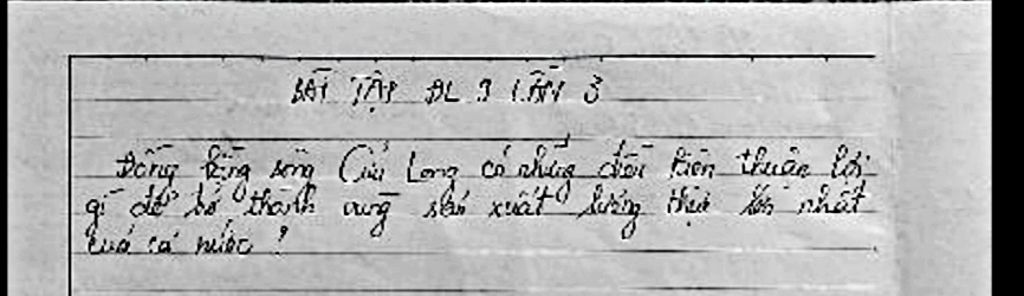 BÀI TẬP ĐL 9 LẦN 3
Đồng bằng sông Cửu Long có những điều kiện thuận lợi
gì để trở thành vùng sản xuất lương thực lớn nhất
của cả nước ?